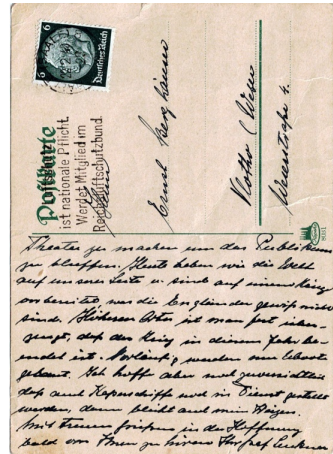 Postkarte
ist nationale Pflicht.
Werdet Mitglied im
Reichsluftschutzbund.
Deutsches Reich
6
6
Ernst
Vlotho / Weser
Weserstraße 4.
Theater zu machen um das Publikum
zu bluffen. Heute haben wir die Welt
auf unserer Seite u. sind auf einen Krieg
vorbereitet, was die Engländer gewiss nicht
sind. Höheren Ortes ist man fest über-
zeugt, daß der Krieg in diesem Jahr be-
endet ist. Vorläufig werden nur
gebaut. Ich hoffe aber noch zuversichtlich
daß auch Kaperschiffe noch in Dienst gestellt
werden, dann blüht auch mein Weizen.
Mit treuen Grüßen in der Hoffnung
bald von Ihnen zu hören Ihr